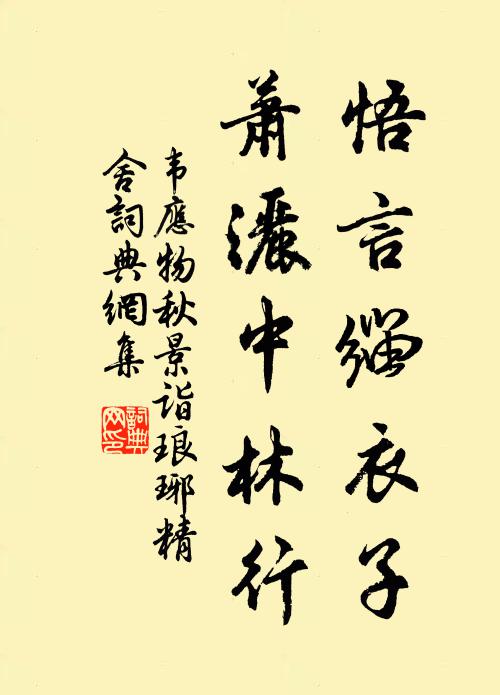 悟言緇衣子
蕭灑中林行
韦應物秋景诣琅琊精
舍詞典網集
詞典
网印